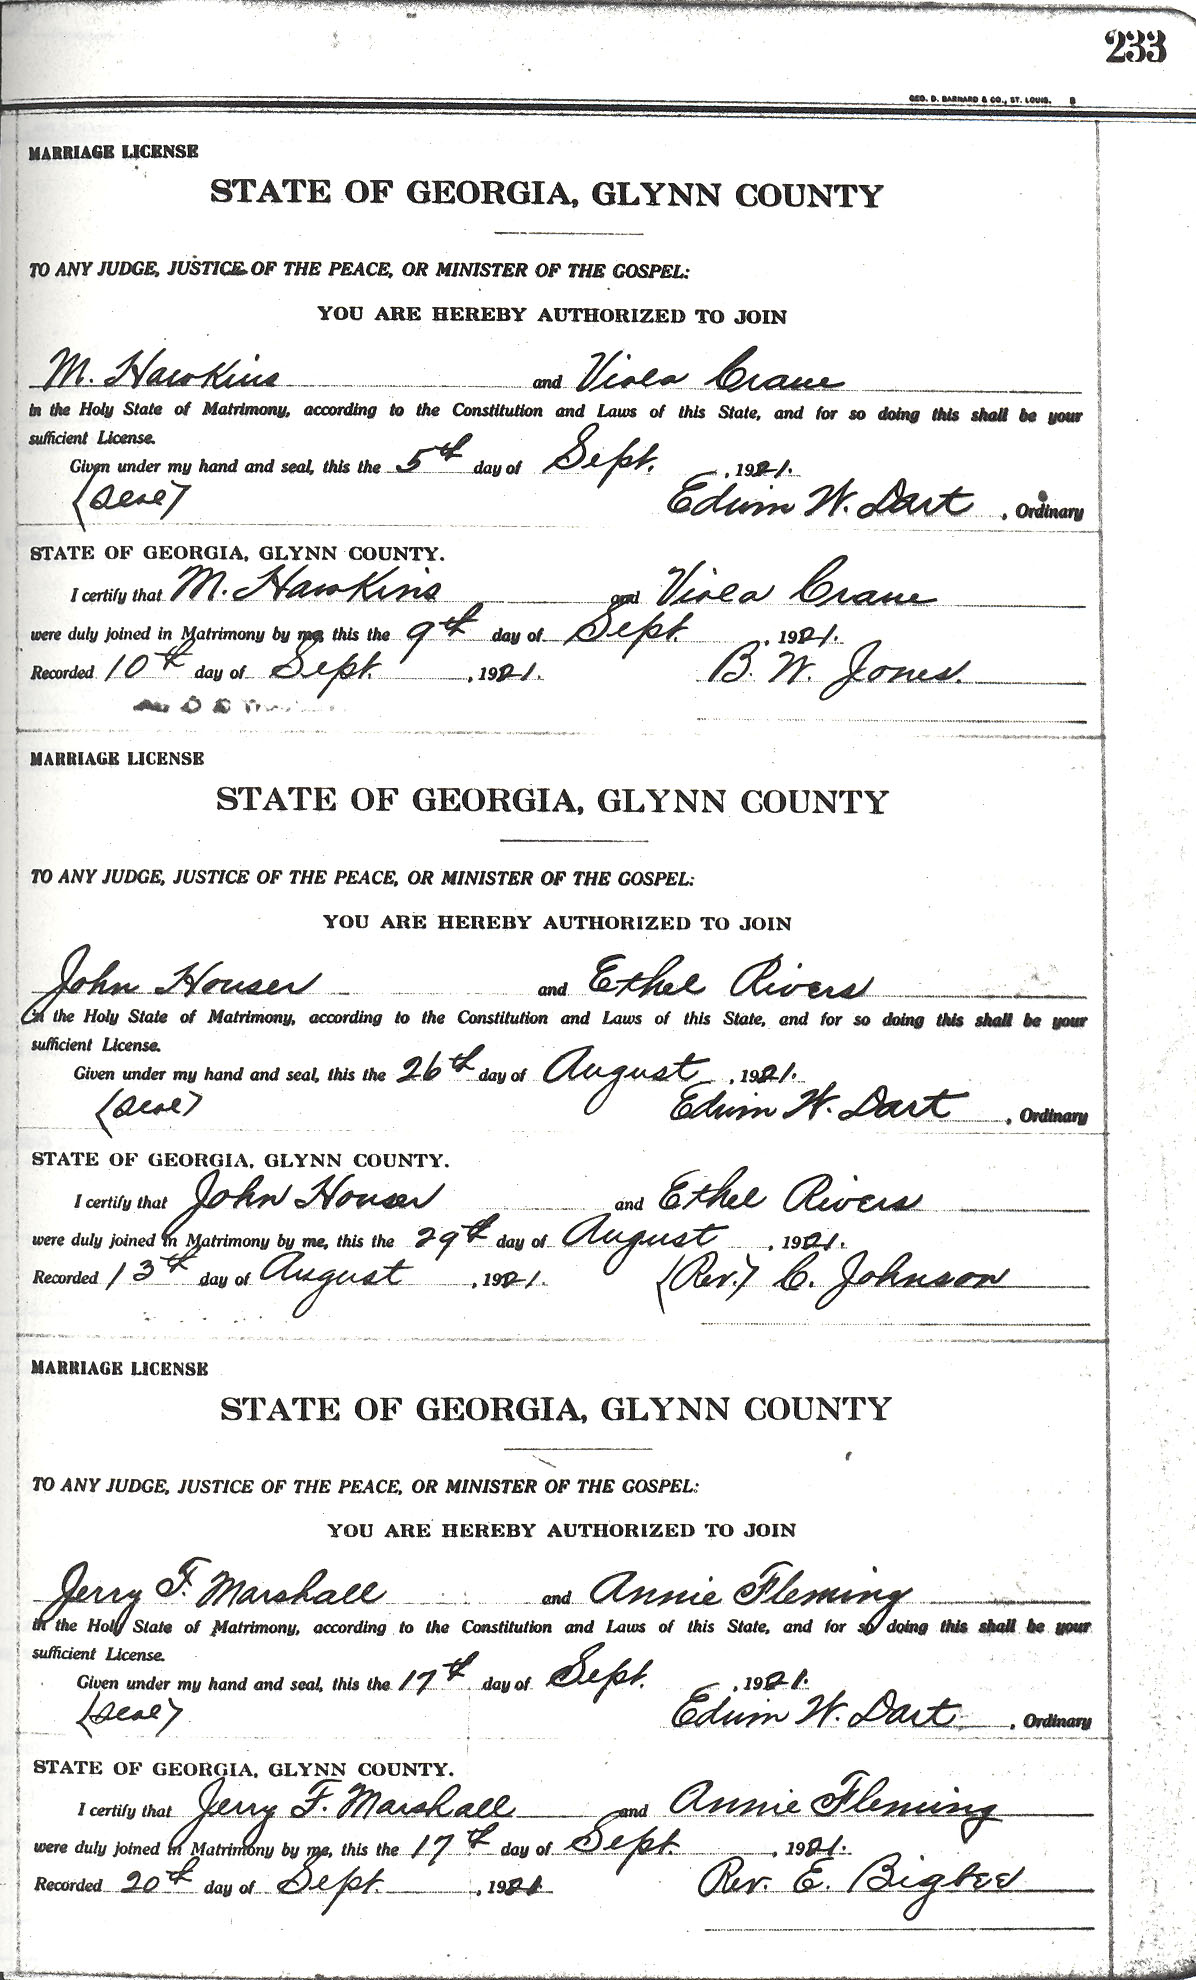 233
GEO. D. BARNARD & CO., ST. LOUIS. B
MARRIAGE LICENSE
STATE OF GEORGIA, GLYNN COUNTY
TO ANY JUDGE, JUSTICE OF THE PEACE, OR MINISTER OF THE GOSPEL:
YOU ARE HEREBY AUTHORIZED TO JOIN
M. Hawkins and Viola Crane
in the Holy State of Matrimony, according to the Constitution and Laws of this State, and for so doing this shall be your
sufficient License.
Given under my hand and seal, this the 5th day of Sept. , 1921.
(Seal) Edwin W. Dart , Ordinary
STATE OF GEORGIA, GLYNN COUNTY.
I certify that M. Hawkins and Viola Crane
were duly joined in Matrimony by me, this the 9th day of Sept. , 1921.
Recorded 10th day of Sept. , 1921. B. W. Jones.
MARRIAGE LICENSE
STATE OF GEORGIA, GLYNN COUNTY
TO ANY JUDGE, JUSTICE OF THE PEACE, OR MINISTER OF THE GOSPEL:
YOU ARE HEREBY AUTHORIZED TO JOIN
John Houser and Ethel Rivers
in the Holy State of Matrimony, according to the Constitution and Laws of this State, and for so doing this shall be your
sufficient License.
Given under my hand and seal, this the 26th day of August , 1921.
(Seal) Edwin W. Dart , Ordinary
STATE OF GEORGIA, GLYNN COUNTY.
I certify that John Houser and Ethel Rivers
were duly joined in Matrimony by me, this the 29th day of August , 1921.
Recorded 13th day of August , 1921. (Rev.) C. Johnson
MARRIAGE LICENSE
STATE OF GEORGIA, GLYNN COUNTY
TO ANY JUDGE, JUSTICE OF THE PEACE, OR MINISTER OF THE GOSPEL:
YOU ARE HEREBY AUTHORIZED TO JOIN
Jerry F. Marshall and Annie Fleming
in the Holy State of Matrimony, according to the Constitution and Laws of this State, and for so doing this shall be your
sufficient License.
Given under my hand and seal, this the 17th day of Sept. , 1921.
(Seal) Edwin W. Dart , Ordinary
STATE OF GEORGIA, GLYNN COUNTY.
I certify that Jerry F. Marshall and Annie Fleming
were duly joined in Matrimony by me, this the 17th day of Sept. , 1921.
Recorded 20th day of Sept. , 1921 Rev. E. Bigbee